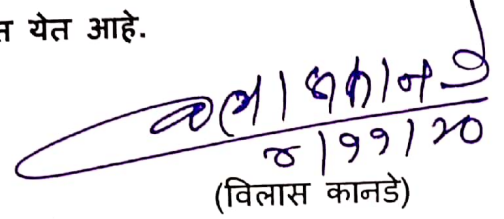 त येत आहे.
४|११|२०
(विलास कानडे)